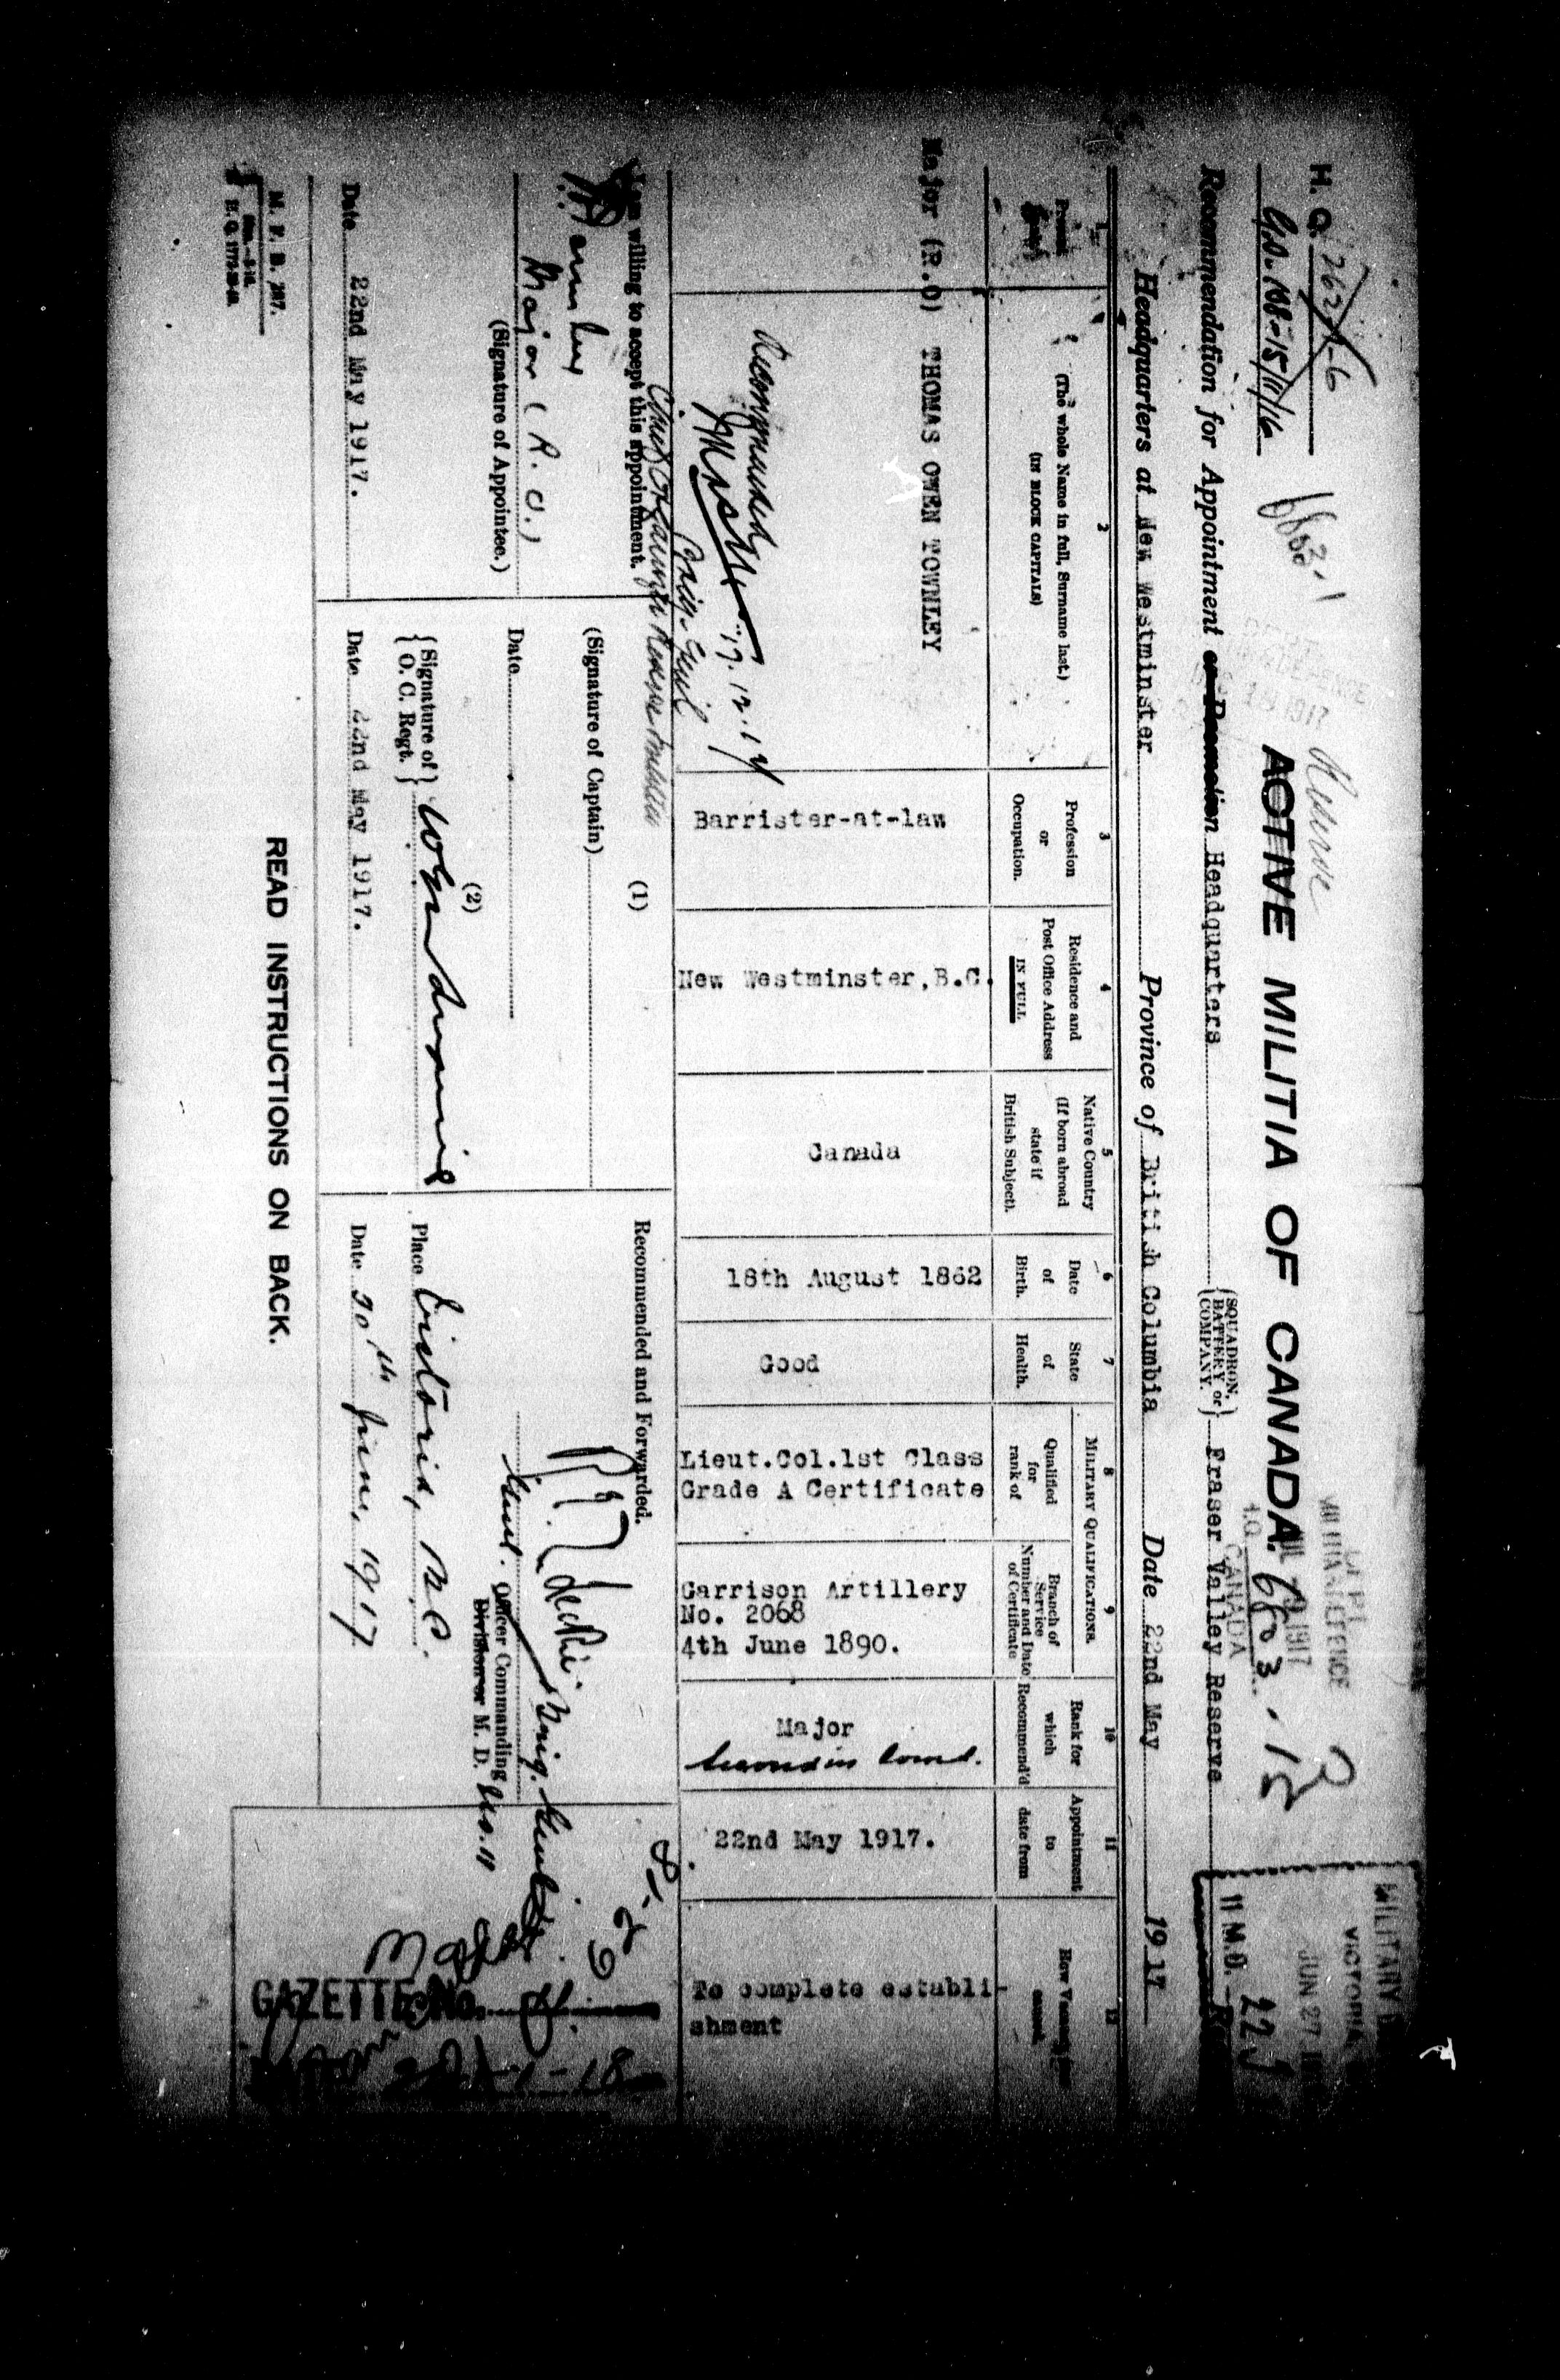 H. Q. 762-1-6
G.O. 108-15/11/16
Reserve
ACTIVE MILITIA OF CANADA.
DEPT.
MILITIA & DEFENCE
1917
H.Q. CANADA
683.15
MILITARY
VICTORIA
JUN 27
11 M.D.
Recommendation for Appointment or Promotion Headquarters {SQUADRON, BATTERY or COMPANY.} Fraser Valley Reserve
Headquarters at New Westminster Province of British Columbia Date 22nd May 1917
1
2
(The whole Name in full, Surname last.)
(IN BLOCK CAPITALS)
3
Profession
or
Occupation.
4
Residence and
Post Office Address
IN FULL
5
Native Country
(If born abroad
state if
British Subject).
6
Date
of
Birth.
7
State
of
Health.
MILITARY QUALIFICATIONS.
8
Qualified
for
rank of
9
Branch of
Service
Number and Date
of Certificate
10
Rank for
which
Recommend'd
11
Appointment
to
date from
12
How Vacancy
Major (R.O) THOMAS OWEN TOWNLEY
Barrister-at-law
New Westminster, B.C.
Canada
18th August 1862
Good
Lieut.Col.1st Class
Grade A Certificate
Garrison Artillery
No. 2068
4th June 1890.
Major
Second in Comd.
22nd May 1917.
To complete establi-
shment
Recommended
17.12.17
Brig. Genl
I am willing to accept this appointment.
Major (R.O.)
(Signature of Appointee.)
Date 22nd May 1917.
(1)
(Signature of Captain)
Date
(2)
{Signature of O. C. Regt.}
Date 22nd May 1917.
Recommended and Forwarded.
Brig. Genl.
Officer Commanding
Division or M. D. No. 11
Place Victoria, B.C.
Date 20th June, 1917
GAZETTE No.
M. F. B. 207.
READ INSTRUCTIONS ON BACK.